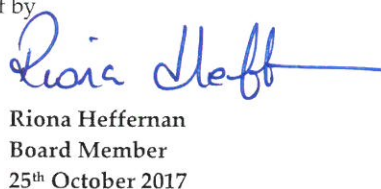 by
Riona Heff
Riona Heffernan
Board Member
25th October 2017